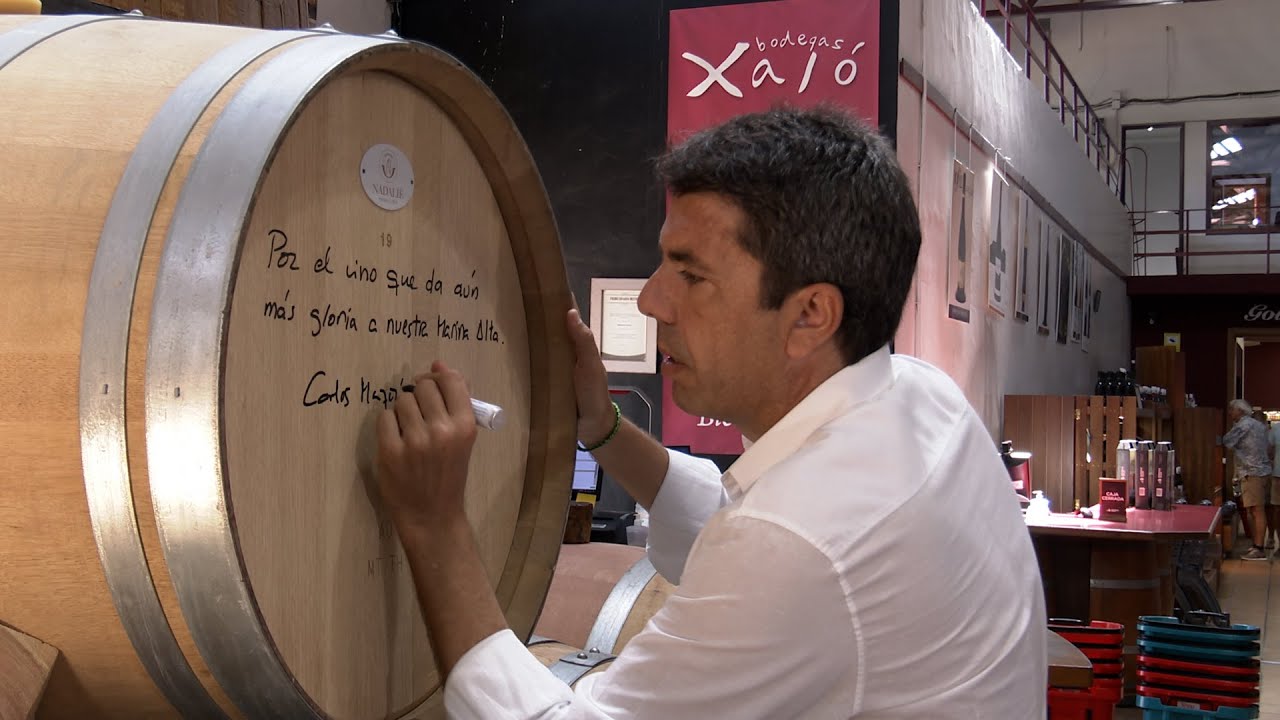 bodegas
Xaló
NADALIÉ
19
Por el vino que da aún
más gloria a nuestra Marina Alta.
Carlos Mazó
CAJA
CERRADA